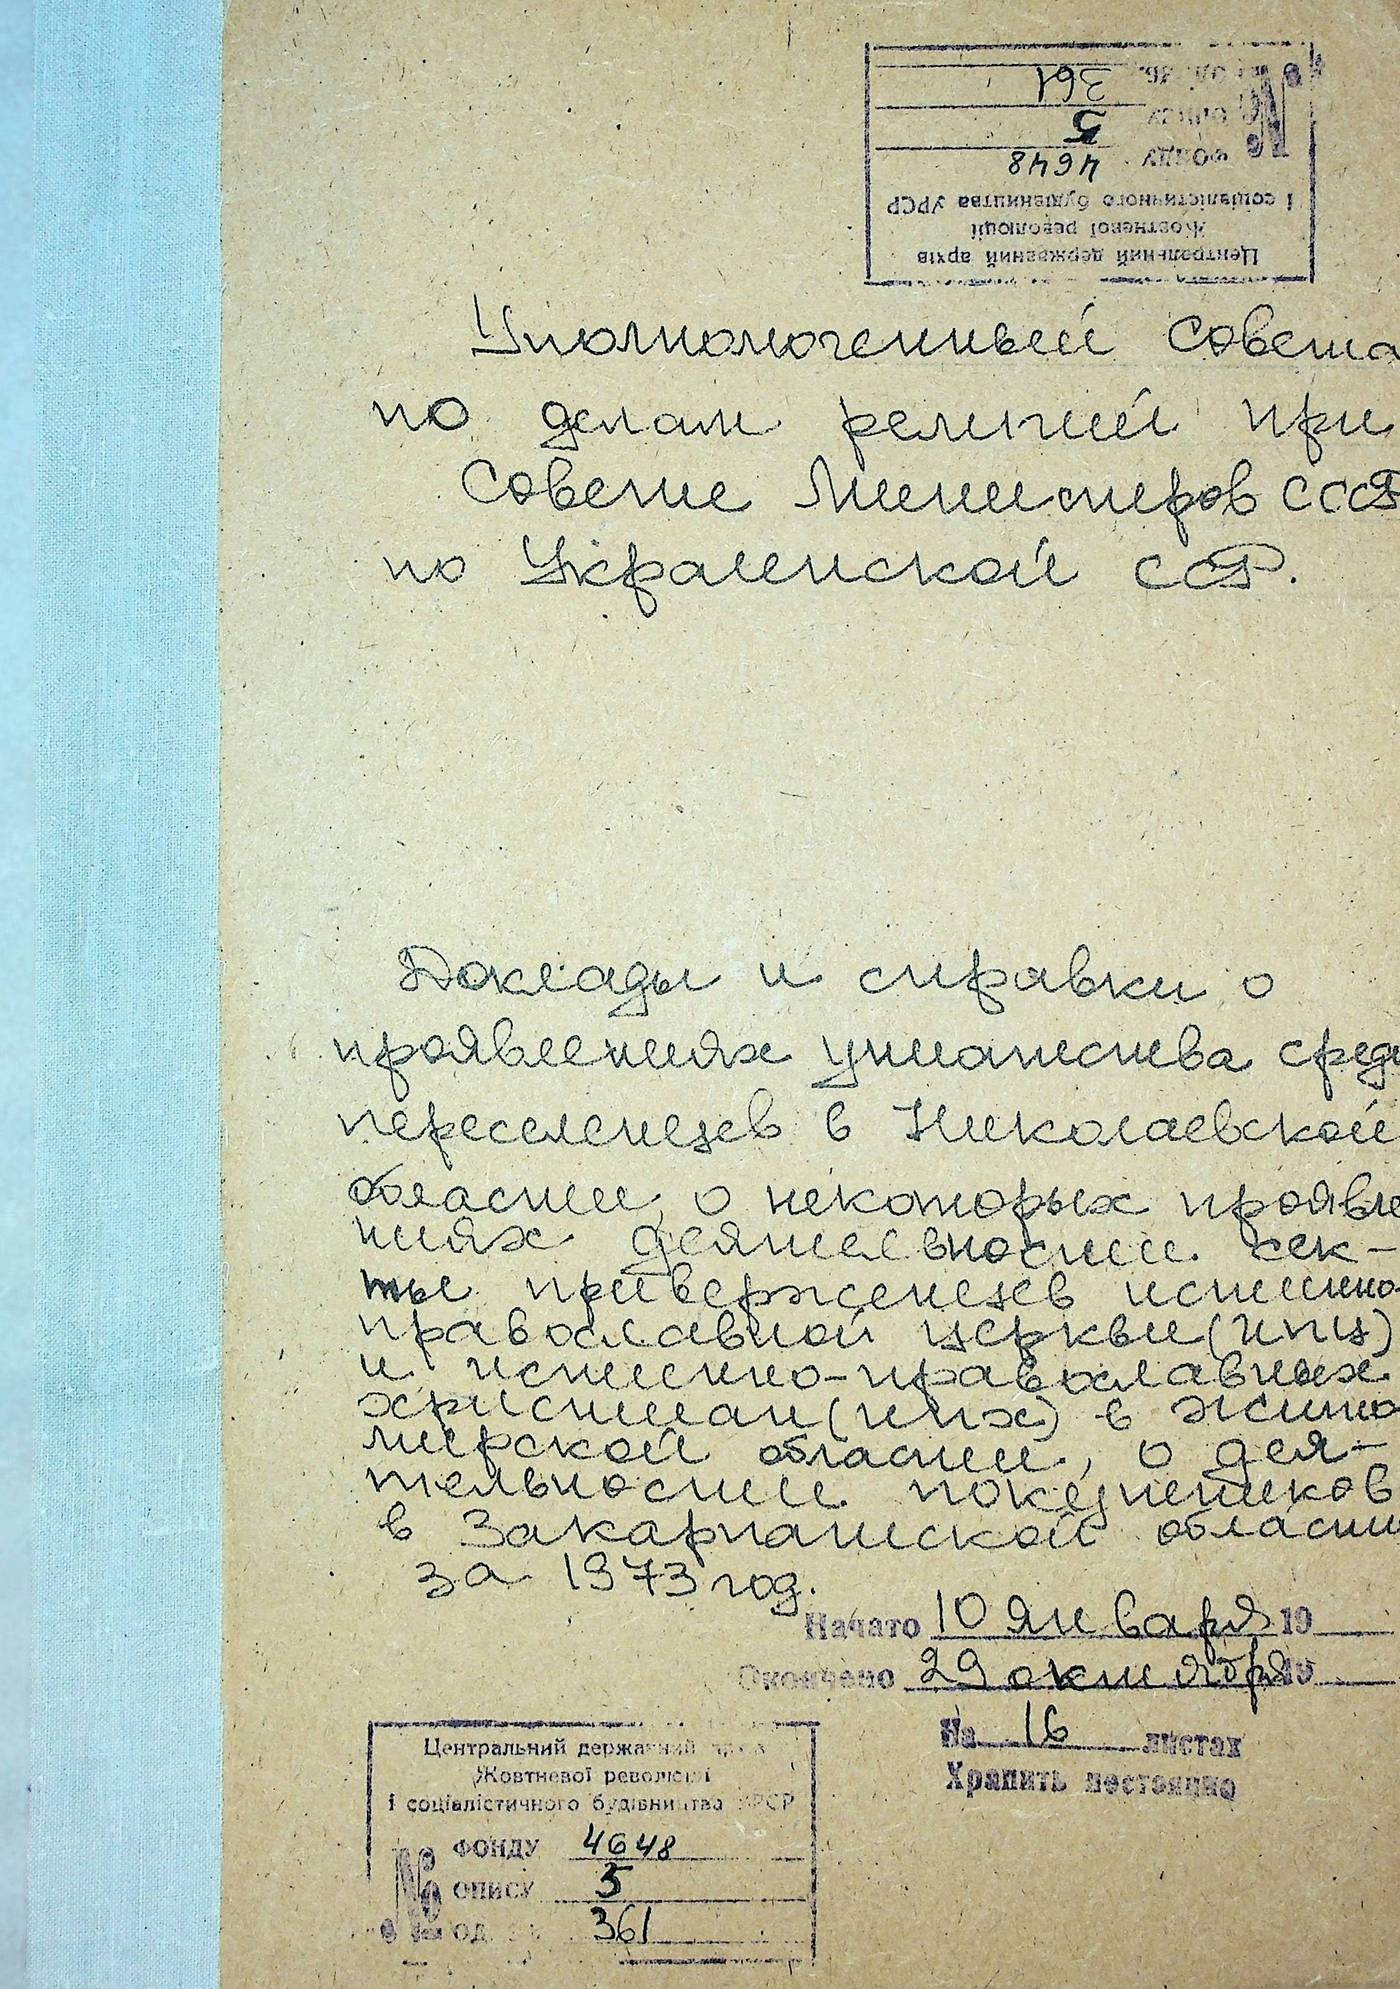 Центральний державний архів
Жовтневої революції
і соціалістичного будівництва УРСР
№ фонду 4648
опису 5
од. зб. 361
Уполномоченный Совета
по делам религий при
Совете Министров СССР
по Украинской ССР.
Доклады и справки о
проявлениях униатства среди
переселенцев в Николаевской
области, о некоторых проявле
ниях деятельности сек-
ты приверженцев истинно-
православной церкви (ИПЦ)
и истинно-православных
христиан (ИПХ) в Жито
мирской области, о дея-
тельности покутников
в Закарпатской области
за 1973 год.
Начато 10 января 19
Окончено 29 октября 19
На 16 листах
Хранить постоянно
Центральний державний архів
Жовтневої революції
і соціалістичного будівництва УРСР
№ ФОНДУ 4648
ОПИСУ 5
ОД. ЗБ. 361